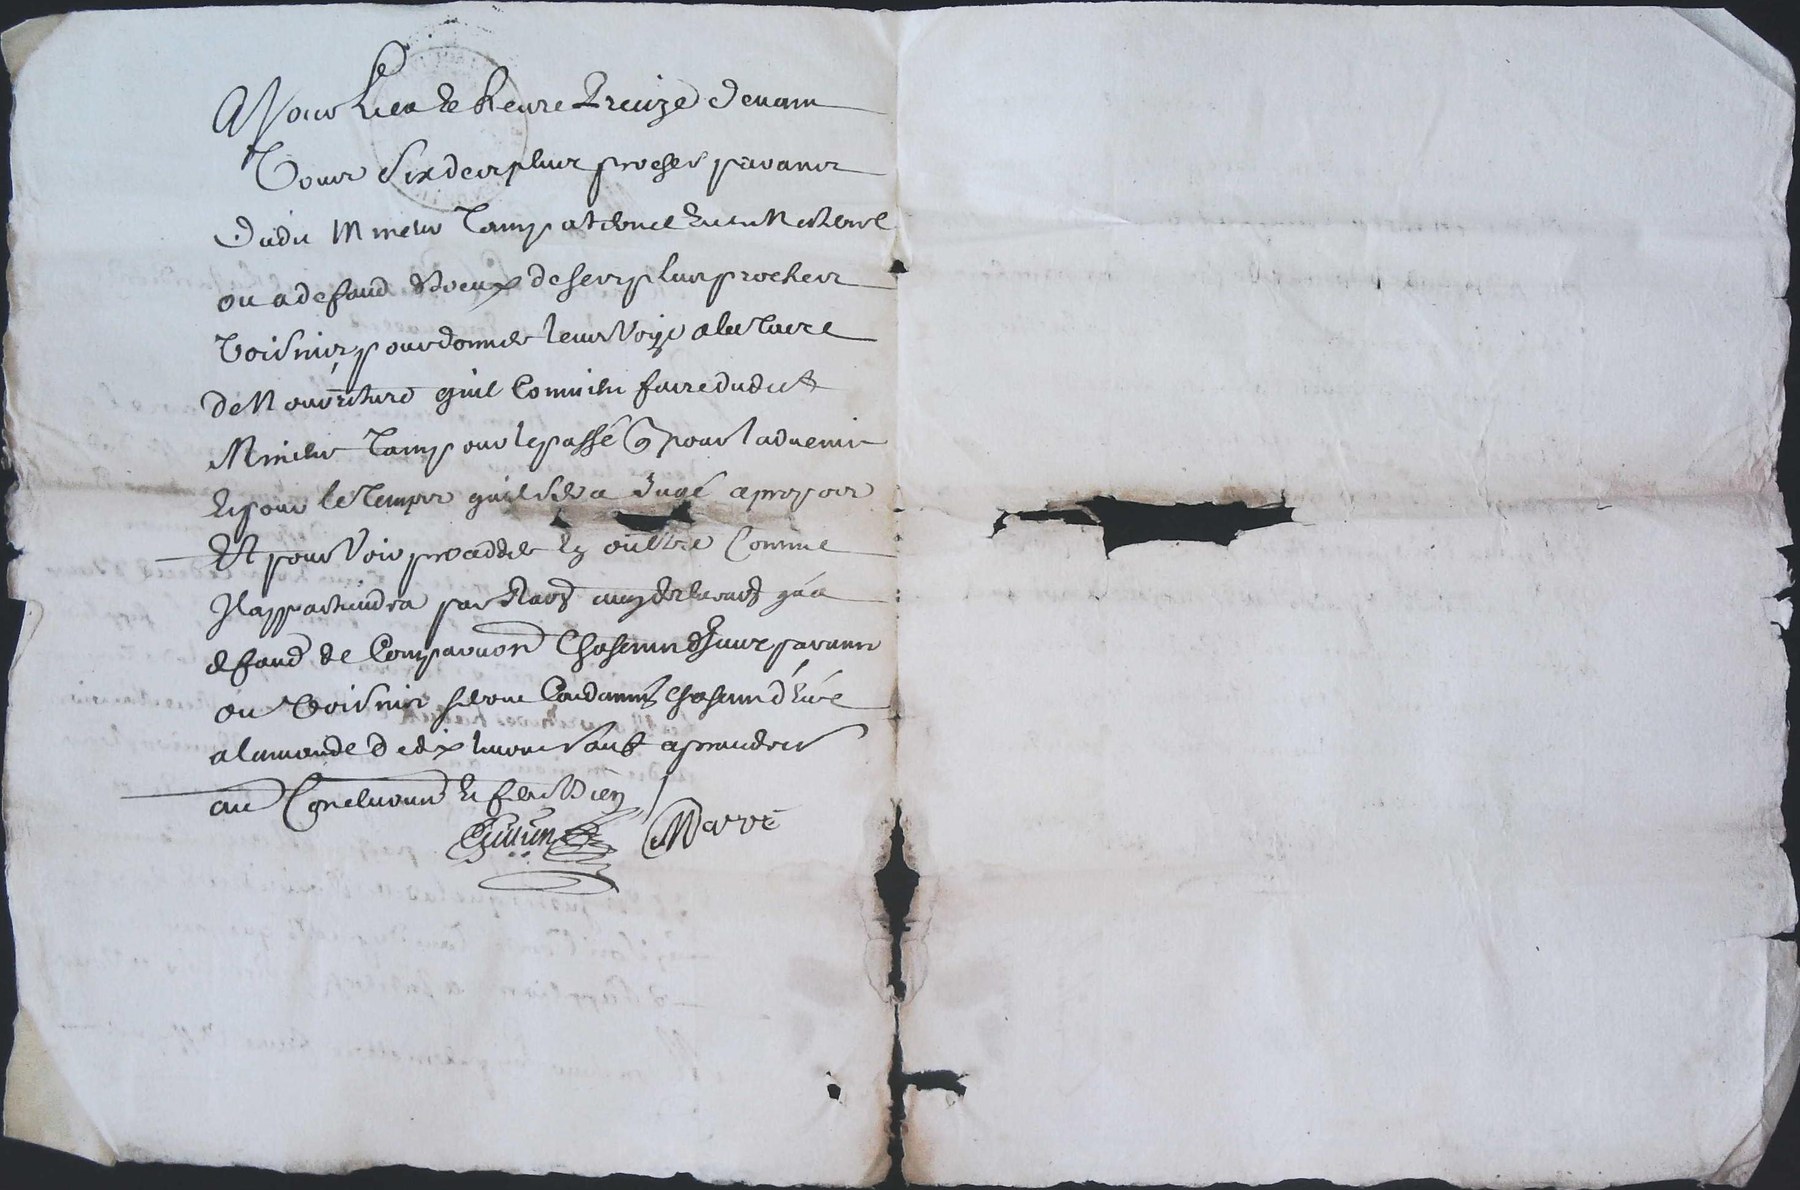 A Jour Lieu & heure Precize devant
Vous six des plus proches parans
dudit Mineur Tamp aternel que Maternel
ou a defaud d'Iceux de ses plus procheis
Voisins, pour donner leur Voix a la taxe
de Nouvriture quil Convient faire dudict
Mineur Tam pour le passé & pour ladvenir
Et pour le temps quil sera Jugé a propos
Et pour Voir procedder En oultre Comme
Il appartiendra par Raison
defaud de Comparuon Chascun desd parans
ou Voisins seront Condamnés Chascun d'Eux
a lamande de dix livres sauf a prendre
au Concluons Et ferez Bien
Marre